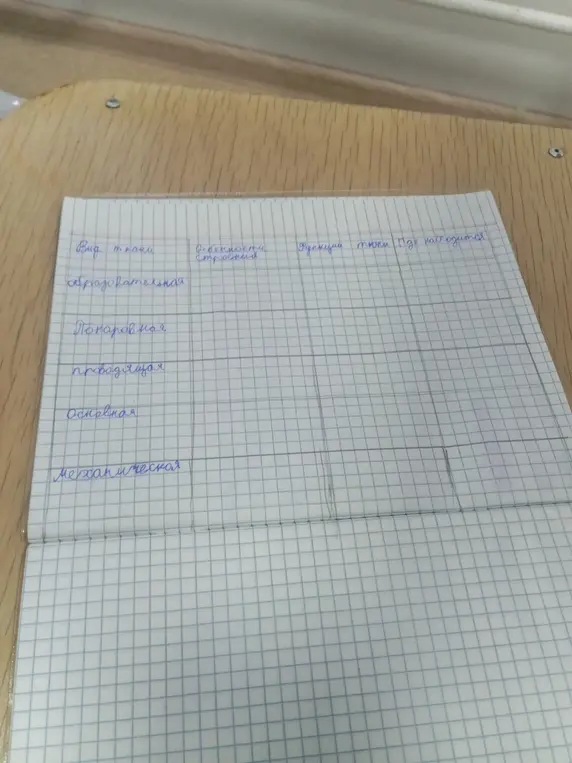 Вид ткани
Особенности строения
Функции ткани
Где находится
образовательная
Покаровная
проводящая
Основная
механическая